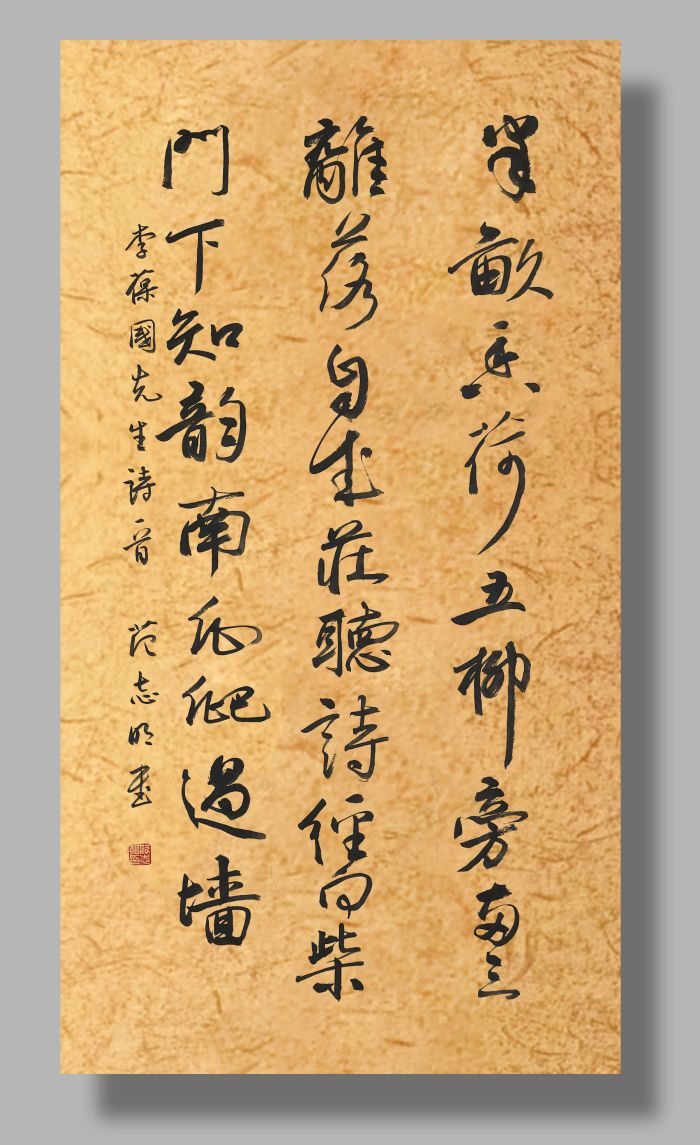 半畝香荷五柳旁兩三
離落自成莊聽詩經向柴
門下知韵南瓜爬過墻
李葆國先生詩一首 范志明書